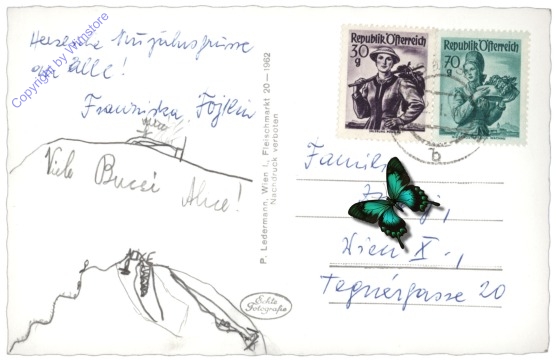 Herzliche Neujahrsgrüsse
an Alle!
Franziska
Viele Bussi
Copyright by Wimstore
P. Ledermann, Wien I., Fleischmarkt 20—1962
Nachdruck verboten
Echte
Fotografie
REPUBLIK ÖSTERREICH
30
g
REPUBLIK ÖSTERREICH
70
g
b
Familie
Wien X.,
Tegnérgasse 20